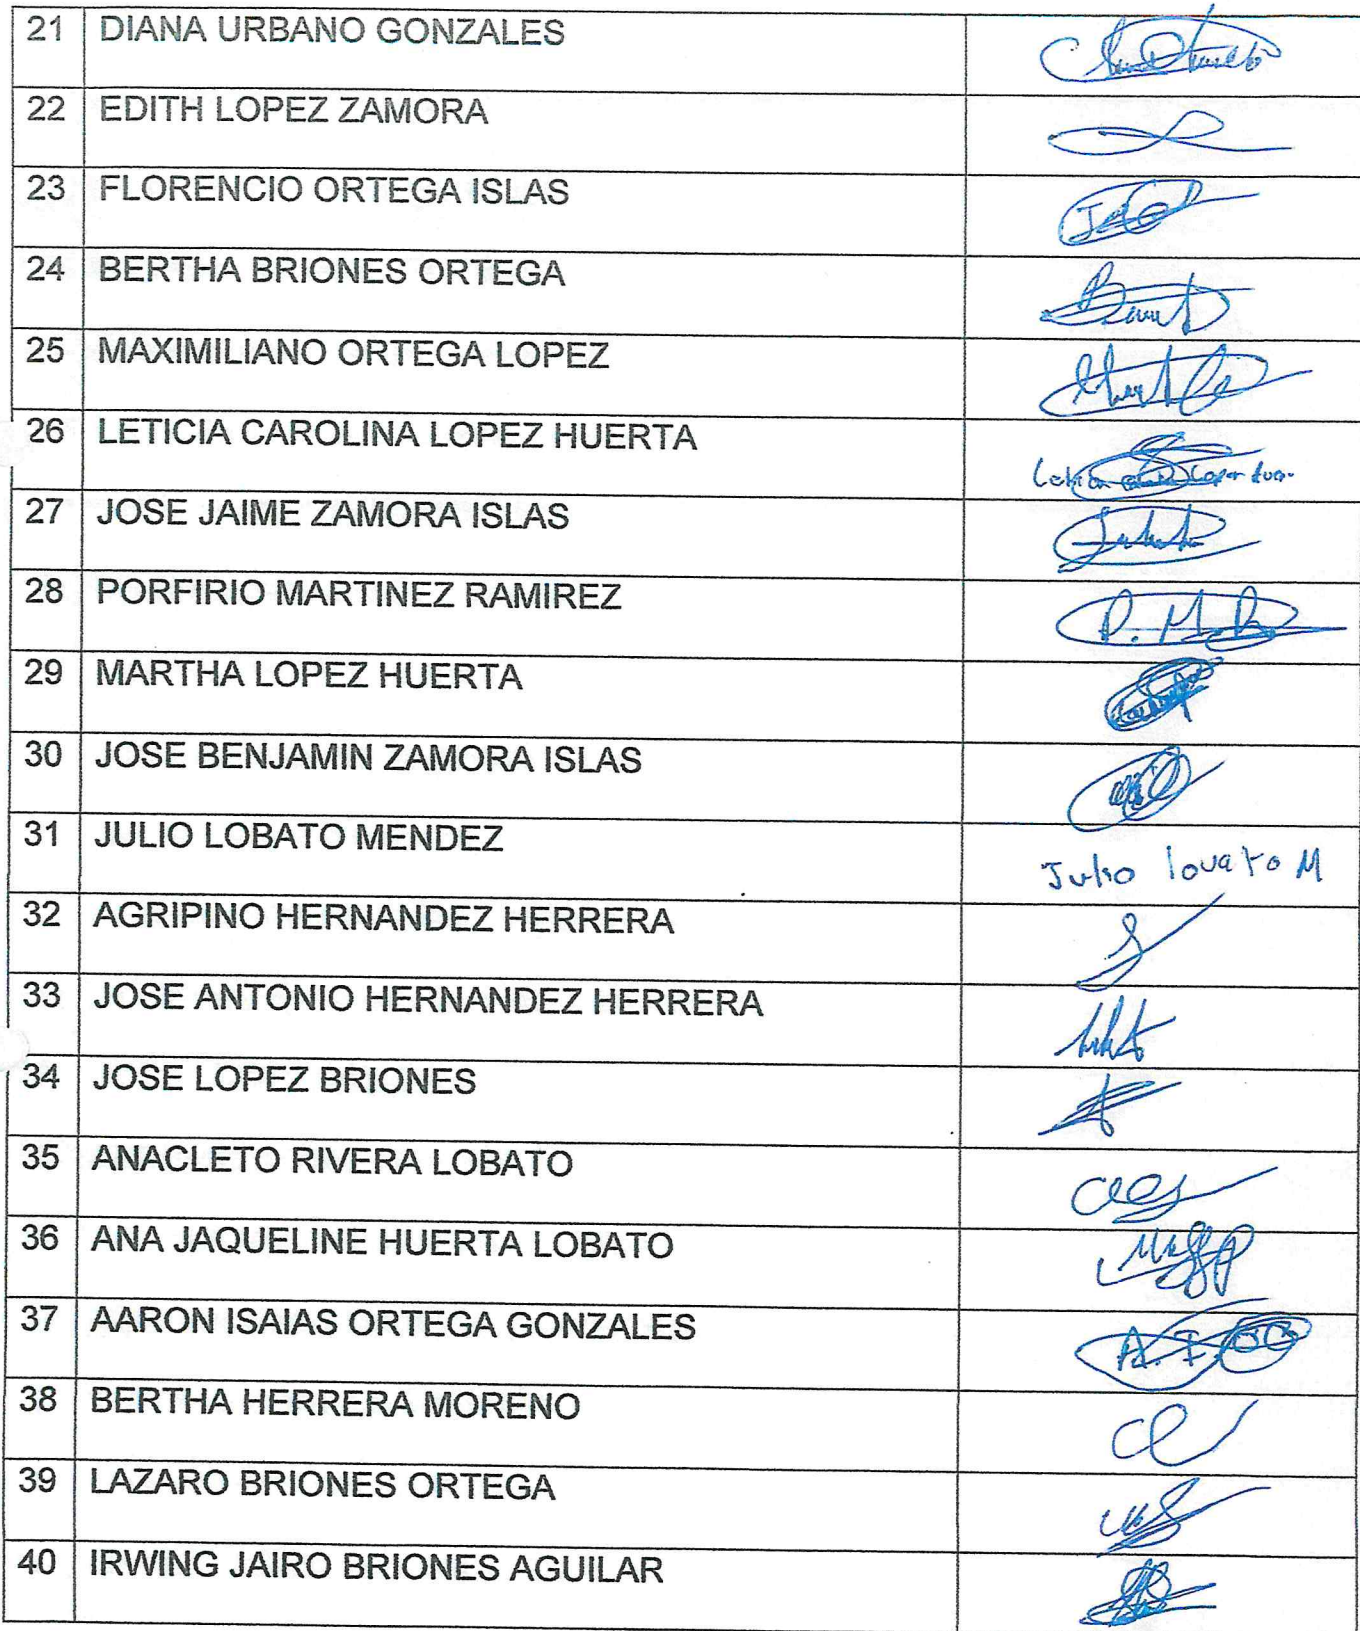 21 DIANA URBANO GONZALES
22 EDITH LOPEZ ZAMORA
23 FLORENCIO ORTEGA ISLAS
24 BERTHA BRIONES ORTEGA
25 MAXIMILIANO ORTEGA LOPEZ
26 LETICIA CAROLINA LOPEZ HUERTA
27 JOSE JAIME ZAMORA ISLAS
28 PORFIRIO MARTINEZ RAMIREZ P. M. R
29 MARTHA LOPEZ HUERTA
30 JOSE BENJAMIN ZAMORA ISLAS
31 JULIO LOBATO MENDEZ Julio lovato M
32 AGRIPINO HERNANDEZ HERRERA
33 JOSE ANTONIO HERNANDEZ HERRERA
34 JOSE LOPEZ BRIONES
35 ANACLETO RIVERA LOBATO
36 ANA JAQUELINE HUERTA LOBATO
37 AARON ISAIAS ORTEGA GONZALES A. I. OG
38 BERTHA HERRERA MORENO
39 LAZARO BRIONES ORTEGA
40 IRWING JAIRO BRIONES AGUILAR